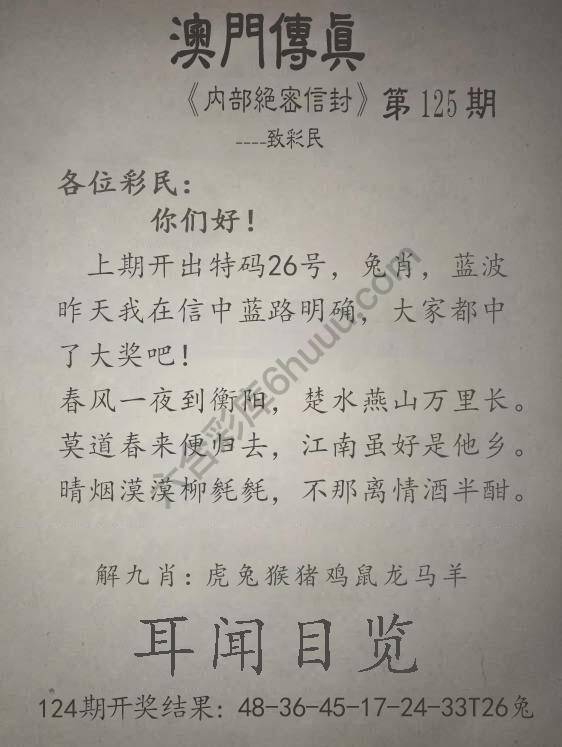 澳門傳真
《内部絕密信封》第125期
----致彩民
各位彩民：
你们好！
上期开出特码26号，兔肖，蓝波
昨天我在信中蓝路明确，大家都中
了大奖吧！
春风一夜到衡阳，楚水燕山万里长。
莫道春来便归去，江南虽好是他乡。
晴烟漠漠柳毵毵，不那离情酒半酣。
解九肖：虎兔猴猪鸡鼠龙马羊
耳闻目览
124期开奖结果：48-36-45-17-24-33T26兔
六合彩库6huuu.com